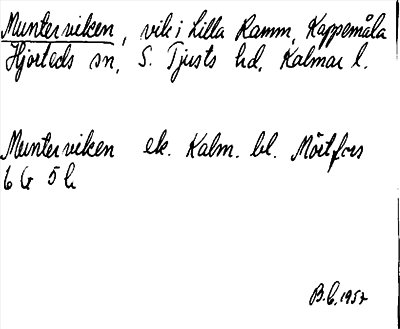 Munterviken, vik i Lilla Ramm, Kappemåla
Hjorteds sn, S. Tjusts hd, Kalmar l.
Munterviken ek. Kalm. bl. Mörtfors
6 G 5 b
B.C. 1957